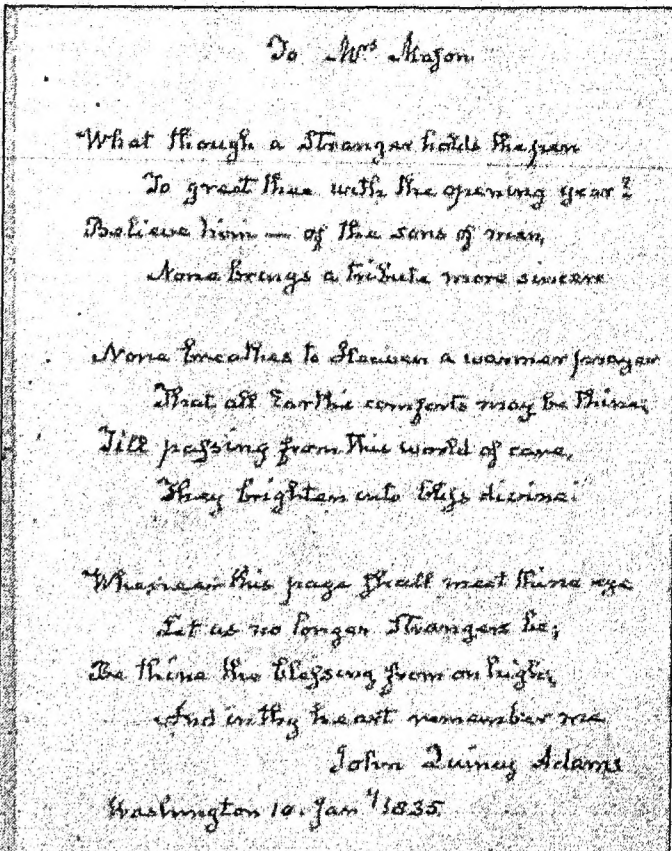 To Mrs Mason.
What though a Stranger holds the pen
To greet thee with the opening year?
Believe him — of the sons of men,
None brings a tribute more sincere
None breathes to Heaven a warmer prayer
That all Earth's comforts may be thine;
Till passing from this world of care,
They brighten into bliss divine.
Whene'er this page shall meet thine eye
Let us no longer Strangers be;
Be thine the blessing from on high;
And in thy heart remember me
John Quincy Adams
Washington 10. Jany 1835.